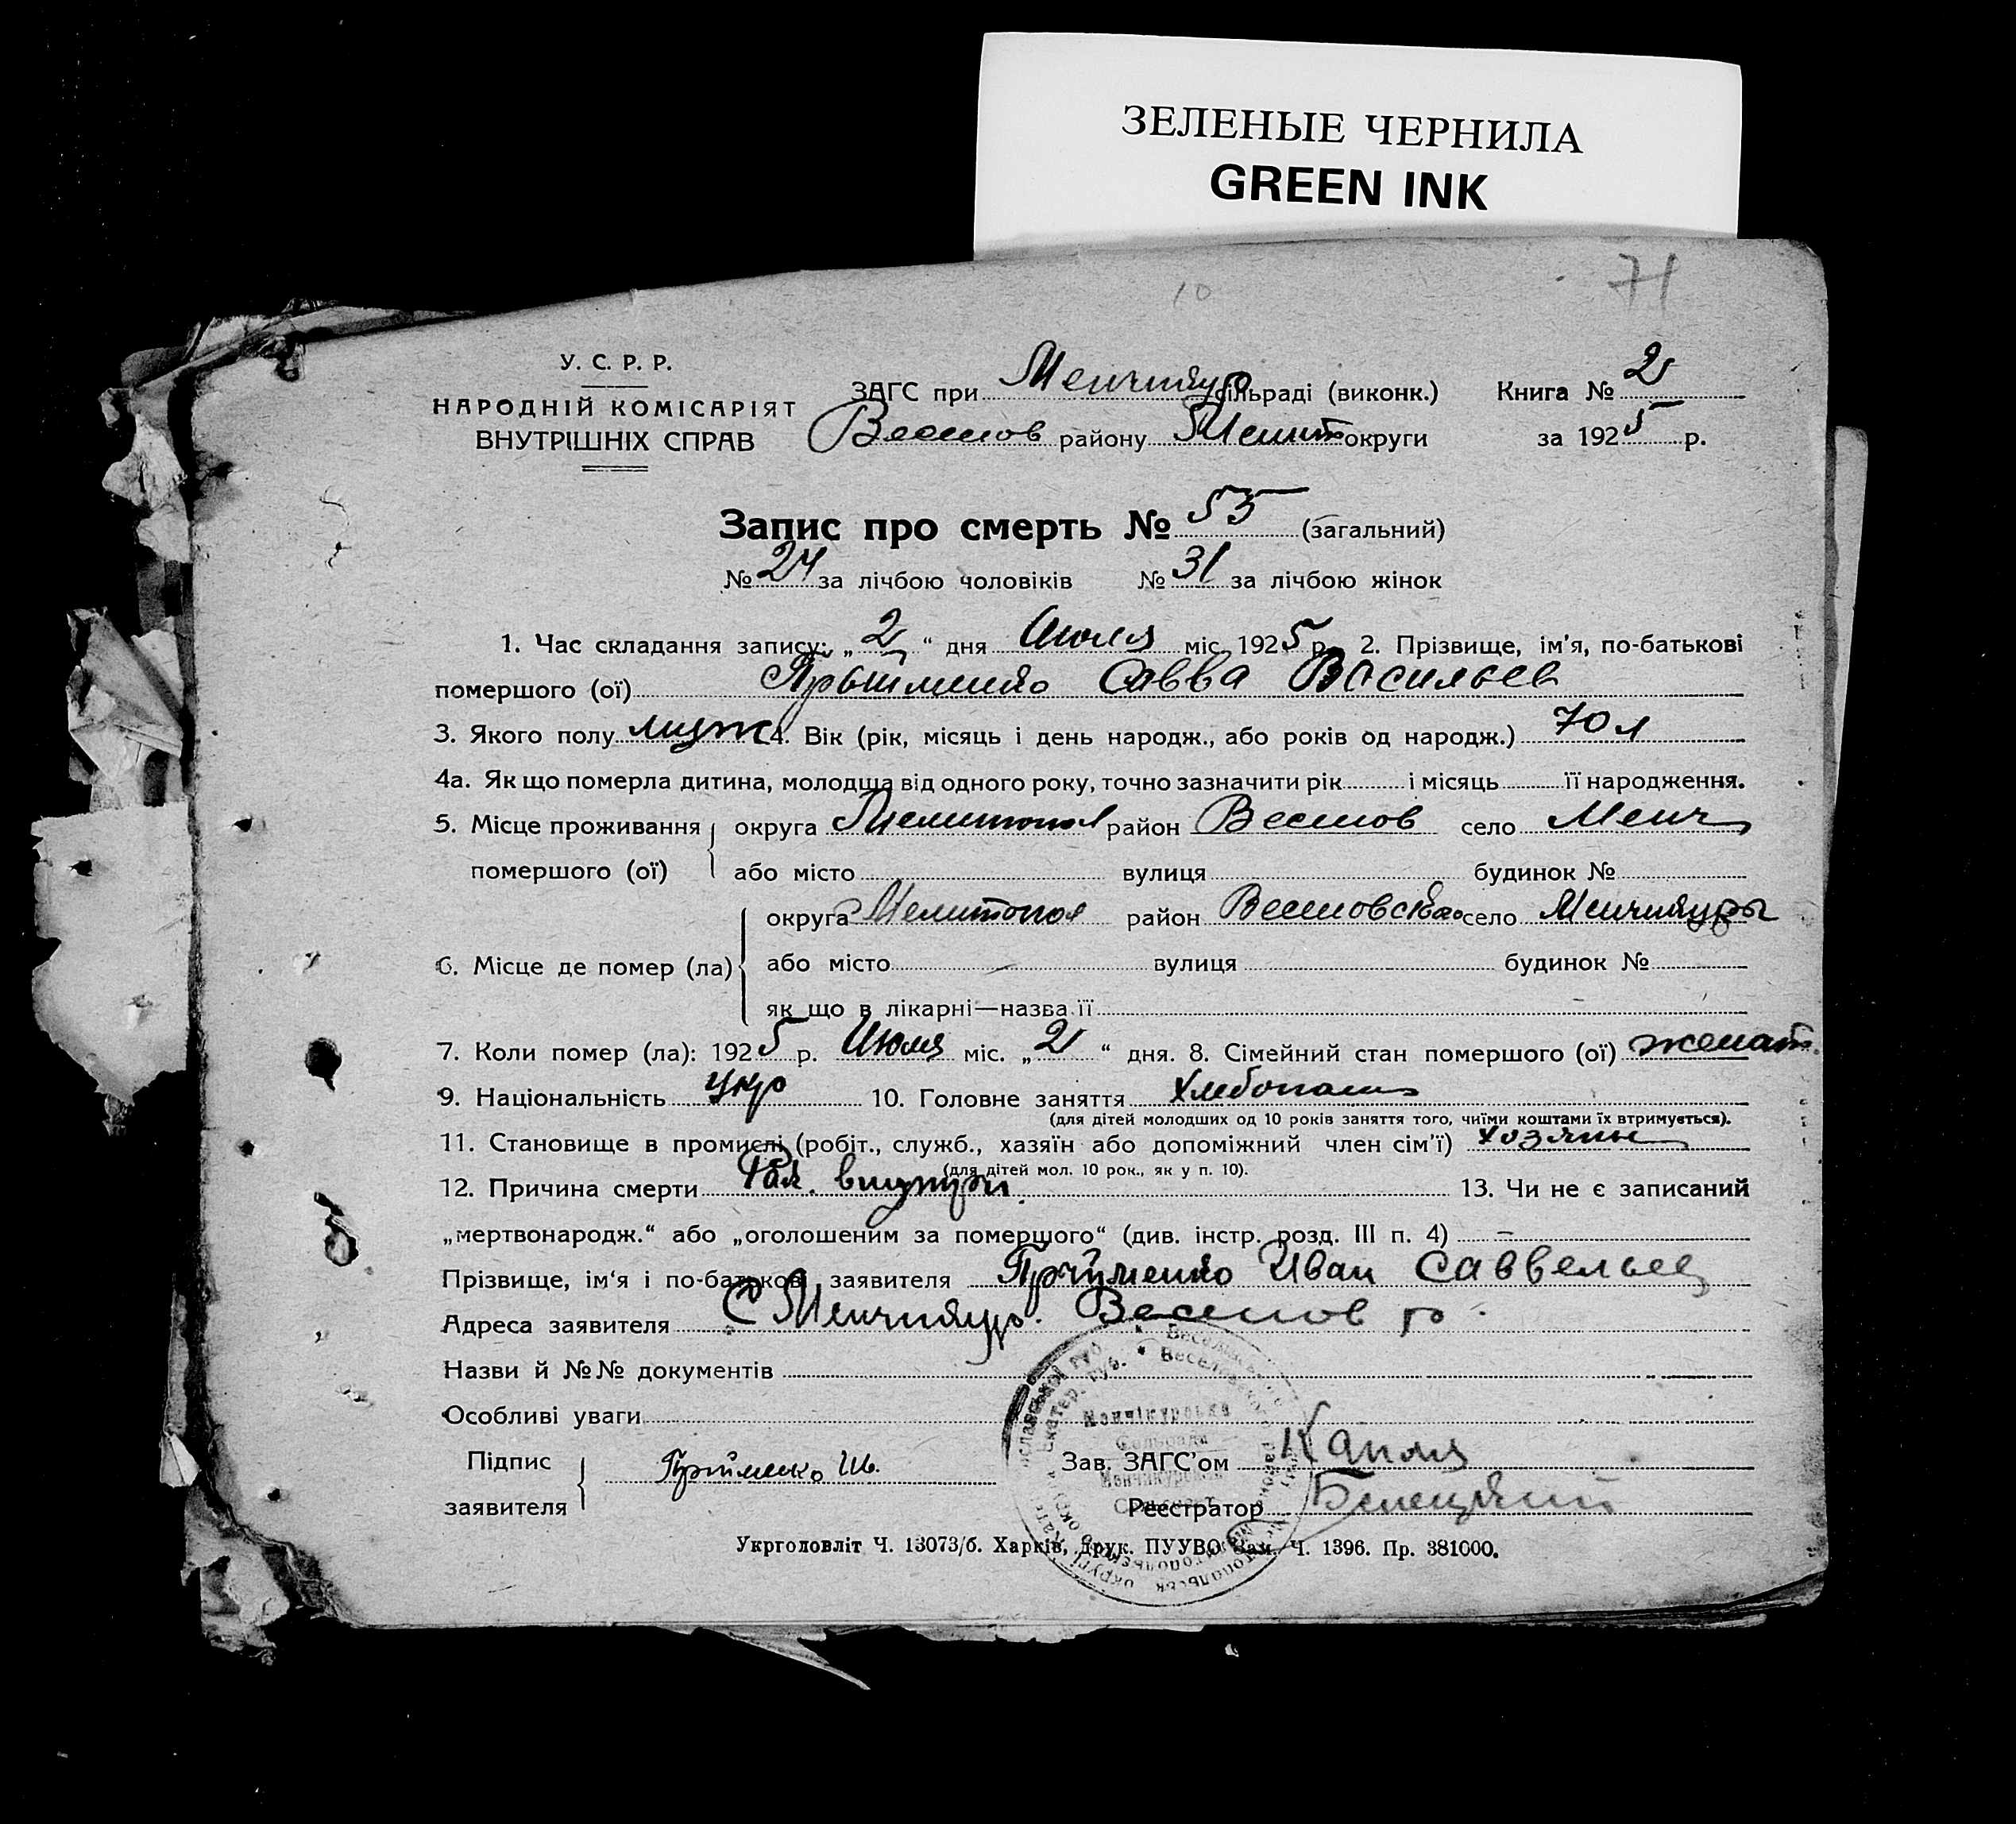 ЗЕЛЕНЫЕ ЧЕРНИЛА
GREEN INK
71
10
У. С. Р. Р.
НАРОДНІЙ КОМІСАРІЯТ
ВНУТРІШНІХ СПРАВ
ЗАГС при Менчикур сільраді (виконк.) Книга № 2
Веселов району Мелит округи за 1925 р.
Запис про смерть № 55 (загальний)
№ 24 за лічбою чоловіків № 31 за лічбою жінок
1. Час складання запису: „2“ дня Июля міс. 1925 р. 2. Прізвище, ім'я, по-батькові
помершого (ої) Прыйменко Савва Васильев
3. Якого полу муж 4. Вік (рік, місяць і день народж., або років од народж.) 70 л
4а. Як що померла дитина, молодща від одного року, точно зазначити рік і місяць її народження.
5. Місце проживання округа Мелитопол район Веселов село Менч
помершого (ої) або місто вулиця будинок №
округа Мелитопол район Веселовского село Менчикуры
6. Місце де помер (ла) або місто вулиця будинок №
як що в лікарні—назва її
7. Коли помер (ла): 1925 р. Июля міс. „2“ дня. 8. Сімейний стан помершого (ої) женат
9. Національність укр 10. Головне заняття Хлебопаш
(для дітей молодших од 10 років заняття того, чиїми коштами їх втримується).
11. Становище в промислі (робіт., служб., хазяїн або допоміжний член сім'ї) хозяин
(для дітей мол. 10 рок., як у п. 10).
12. Причина смерти Рак. внутри. 13. Чи не є записаний
„мертвонародж.“ або „оголошеним за померщого“ (див. інстр. розд. III п. 4) —
Прізвище, ім'я і по-батькові заявителя Прийменко Иван Саввельев
Адреса заявителя С Менчикур. Веселов р
Назви й №№ документів
Особливі уваги
Підпис заявителя Прийменко Ив.
Зав. ЗАГС'ом Капля
Реестратор Белецкий
Менчікурська
Сельрада
Менчикурский
Сельсовет
Укрголовліт Ч. 13073/б. Харків, Друк. ПУУВО Зам. Ч. 1396. Пр. 381000.